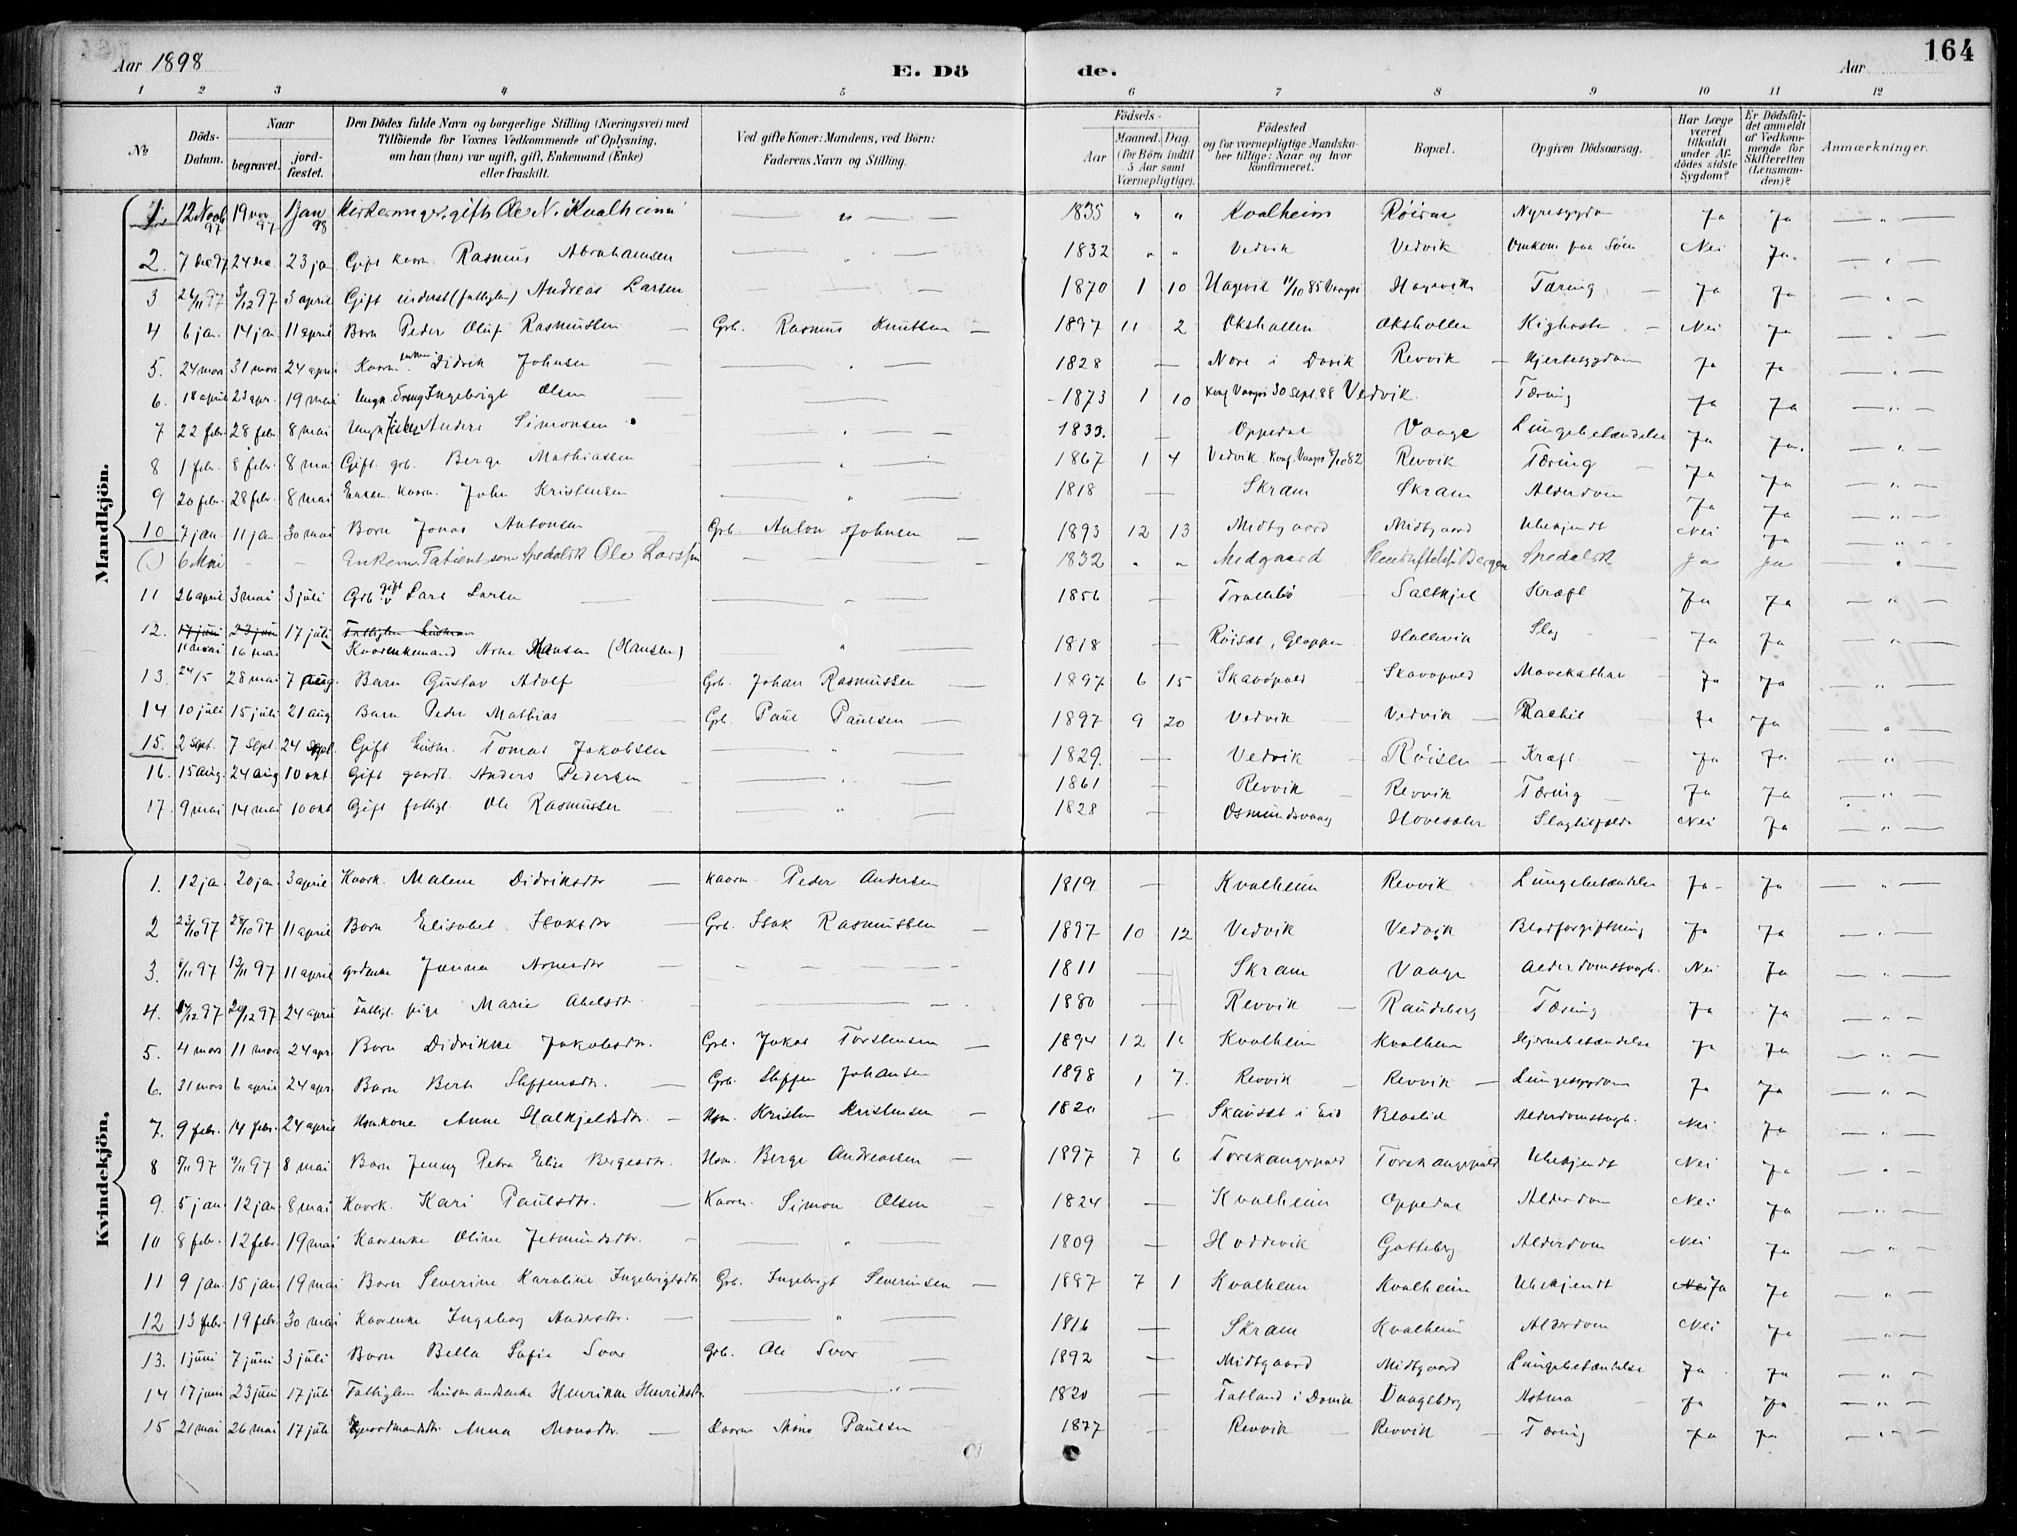 Aar 1898 E. Dö de. Aar 164
1 2 3 4 5 6 7 8 9 10 11 12
№ Döds-Datum. Naar begravet. jord-fæstet. Den Dödes fulde Navn og borgerlige Stilling (Næringsvei) med Tilföiende for Voxnes Vedkommende af Oplysning, om han (hun) var ugift, gift, Enkemand (Enke) eller fraskilt. Ved gifte Koner: Mandens, ved Börn: Faderens Navn og Stilling. Födsels- Aar Maaned. Dag (for Börn indtil 5 Aar samt Værnepligtige). Födested og for værnepligtige Mandskaber tillige: Naar og hvor konfirmeret. Bopæl. Opgiven Dödsaarsag. Har Læge været tilkaldt under Afdödes sidste Sygdom? Er Dödsfaldet anmeldt af Vedkommende for Skifteretten (Lensmanden)? Anmærkninger.
Mandkjön.
1. 12 Novb 97 19 nov 97 1 Jan 98 Kirkesanger, gift Ole N. Kvalheim — " — 1835 " " Kvalheim Röisæ Nyresygdo Ja Ja — " —
2. 7 dec 97 24 dec 23 ja Gift kaarm. Rasmus Abrahamsen — " — 1832 " " Vedvik Vedvik Omkom paa Söen Nei Ja. — " —
3 24/11 97 3/12 97 3 april Gift inderst (fattiglem) Andreas Larsen — 1870 1 10 Hagevik 11/10 85 Vaagsö Hagevik Tæring Ja Ja — " —
4 6 jan. 14 jan 11 april Barn Peder Oluf Rasmussen — Grb. Rasmus Knutsen — 1897 11 2 Okshallen Okshallen Kighoste Nei Ja — " —
5. 24 mars 31 mars 24 april Kaarm. enkem. Didrik Johnsen — " — 1828 — Nore i Davik Revvik Hjertesygdom Ja Ja — " —
6. 18 april 23 apr. 19 mai Ungk. Dreng Ingebrigt Olsen — 1873 1 10 Konf Vaagsö 30 sept. 88 Vedvik. Tæring Ja Ja — " —
7 22 febr 28 febr 8 mai Ungk. fisker Anders Simonsen — " — 1833. — Oppedal Vaage Lungebetændelse Ja Ja. — " —
8 1 feb. 8 febr. 8 mai Gift. grb. Berge Mathiassen — " — 1867 1 4 Vedvik Konf. Vaagsö 8/10 82 Revvik Tæring Ja Ja — " —
9 20 febr. 28 febr. 8 mai Enkem. kaarm. John Kristensen — " — 1818 — Skram Skram Alderdom Ja Ja — " —
10 7 jan. 11 ja 30 mai Barn Jonas Antonsen Grb. Anton Johnsen — 1893 12 13 Midtgaard Midtgaard Ubekjendt Nei Ja — " —
6 Mai — — Enkem. Patient som spedalsk Ole Larssen — 1832 " " Midgaard Pleiestiftelse i Bergen Spedalsk Ja Ja — " —
11 26 april 3 mai 3 juli Grb. gift Lars Larsen — " — 1856 — Trollebö Saltkjel Kræft Ja Ja — " —
12. 17 juni 23 juni 17 juli Fattiglem husman
11 mai 16 mai Kaarenkemand Arne Hansen (Hansen) " 1818 — Röiset, Gloppen Hallevik Slag Ja Ja — " —
13. 24/5 28 mai 7 aug. Barn Gustav Adolf Grb. Johan Rasmussen — 1897 6 15 Skavöpold Skavöpold Mavekathar Ja Ja — " —
14 10 juli 15 juli 21 aug Barn Peder Mathias — Grb. Paul Paulsen — 1897 9 20 Vedvik — Vedvik — Rachit Ja Ja — " —
15. 2 sept. 7 sept. 24 sept. Gift husm. Tomas Jakobsen — " — 1829. — Vedvik — Röisen — Kræft. Ja Ja — " —
16. 15 aug. 24 aug 10 okt. Gift gaardb. Anders Pedersen — " — 1861 — Revvik — Revvik Tæring — Ja Ja — " —
17. 9 mai 14 mai 10 okt Gift fattigl. Ole Rasmussen — " — 1828 — Osmundsvaag Hovesæter Slagtilfælde Nei Ja — " —
Kvindekjön.
1. 12 ja. 20 jan. 3 april Kaark. Malene Didriksdtr — kaarm. Peder Andersen 1819 — Kvalheim Revvik Lungebetændelse Ja Ja — " —
2 23/10 97 28/10 97 11 april Barn Elisabet Isaksdtr Grb. Isak Rasmussen — 1897 10 12 Vedvik Vedvik Blodforgiftning Ja Ja — " —
3. 8/11 97 13/11 97 11 april grdenke Janna Arnesdtr — 1811 — Skram Vaage Alderdomssvagh. Nei Ja — " —
4. 14/12 97 20/12 97 24 april Fattigl. pige Marie Abelsdtr. — 1880 — Revvik — Raudeberg Tæring Ja Ja — " —
5. 4 mars 11 mars 24 apr. Barn Didrikke Jakobsdtr. Grb. Jakob Torstensen — 1894 12 Kvalheim Kvalheim Hjernebetændelse Ja Ja — " —
6. 31 mars 6 april 24 apr. Barn Berte Steffensdtr. — Grb. Steffen Johansen 1898 1 7. Revvik — Revvik — Lungesygdom Ja Ja — " —
7. 9 febr. 14 febr. 24 april Hsm.kone Anne Halkjeldsdtr. — Hsm. Kristen Kristensen — 1820 — Skauset i Eid Blaalid Alderdomssvagh. Nei Ja — " —
8 5/11 97 9/11 97 8 mai Barn Jenny Petra Elise Bergesdtr. Hsm. Berge Andreassen — 1897 7 6 Torskangerpold Torskangerpold Ubekjendt Nei Ja — " —
9. 5 jan. 12 jan. 8 mai Kaark. Kari Paulsdtr. — Kaarm. Simon Olsen — 1824 — Kvalheim Oppedal Alderdom Nei Ja — " —
10 8 febr. 12 febr. 19 mai Kaarenke Oline Jetmundsdtr. — " — 1809 — Hoddevik Gotteberg Alderdom Nei Ja — " —
11 9 jan. 15 jan 19 mai Barn Severine Karoline Ingebrigtsdtr Grb. Ingebrigt Severinsen — 1897 7 1 Kvalheim Kvalheim Ubekjendt Nei Ja Ja — " —
12 13 febr. 19 febr. 30 mai Kaarenke Ingeborg Andersdtr. — " — 1816 — Skram Kvalheim Alderdom Nei Ja — " —
13. 1 juni 7 juni 3 juli Barn Bella Sofie Svor Grb. Ole Svor — 1892 — Midtgaard Midtgaard Lungebetændelse Ja Ja — " —
14 17 juni 23 juni 17 juli Fattiglem husmandsenke Henrikke Henriksdtr. — " — 1820 — Totland i Davik Vaagsberg Astma Ja Ja — " —
15 21 mai 26 mai 17 juli Gaardmandsdtr. Anna Monsdtr. — Kaarm Mons Paulsen 1877 — Revvik — Revvik — Tæring Ja Ja — " —